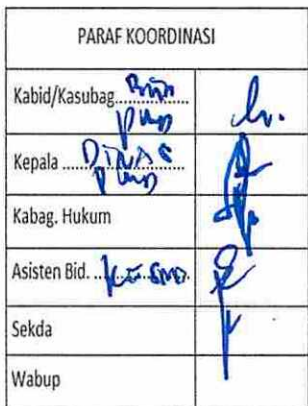 PARAF KOORDINASI
Kabid/Kasubag..............
Kepala ..DINAS
PMD
Kabag. Hukum
Asisten Bid. ..............
Sekda
Wabup